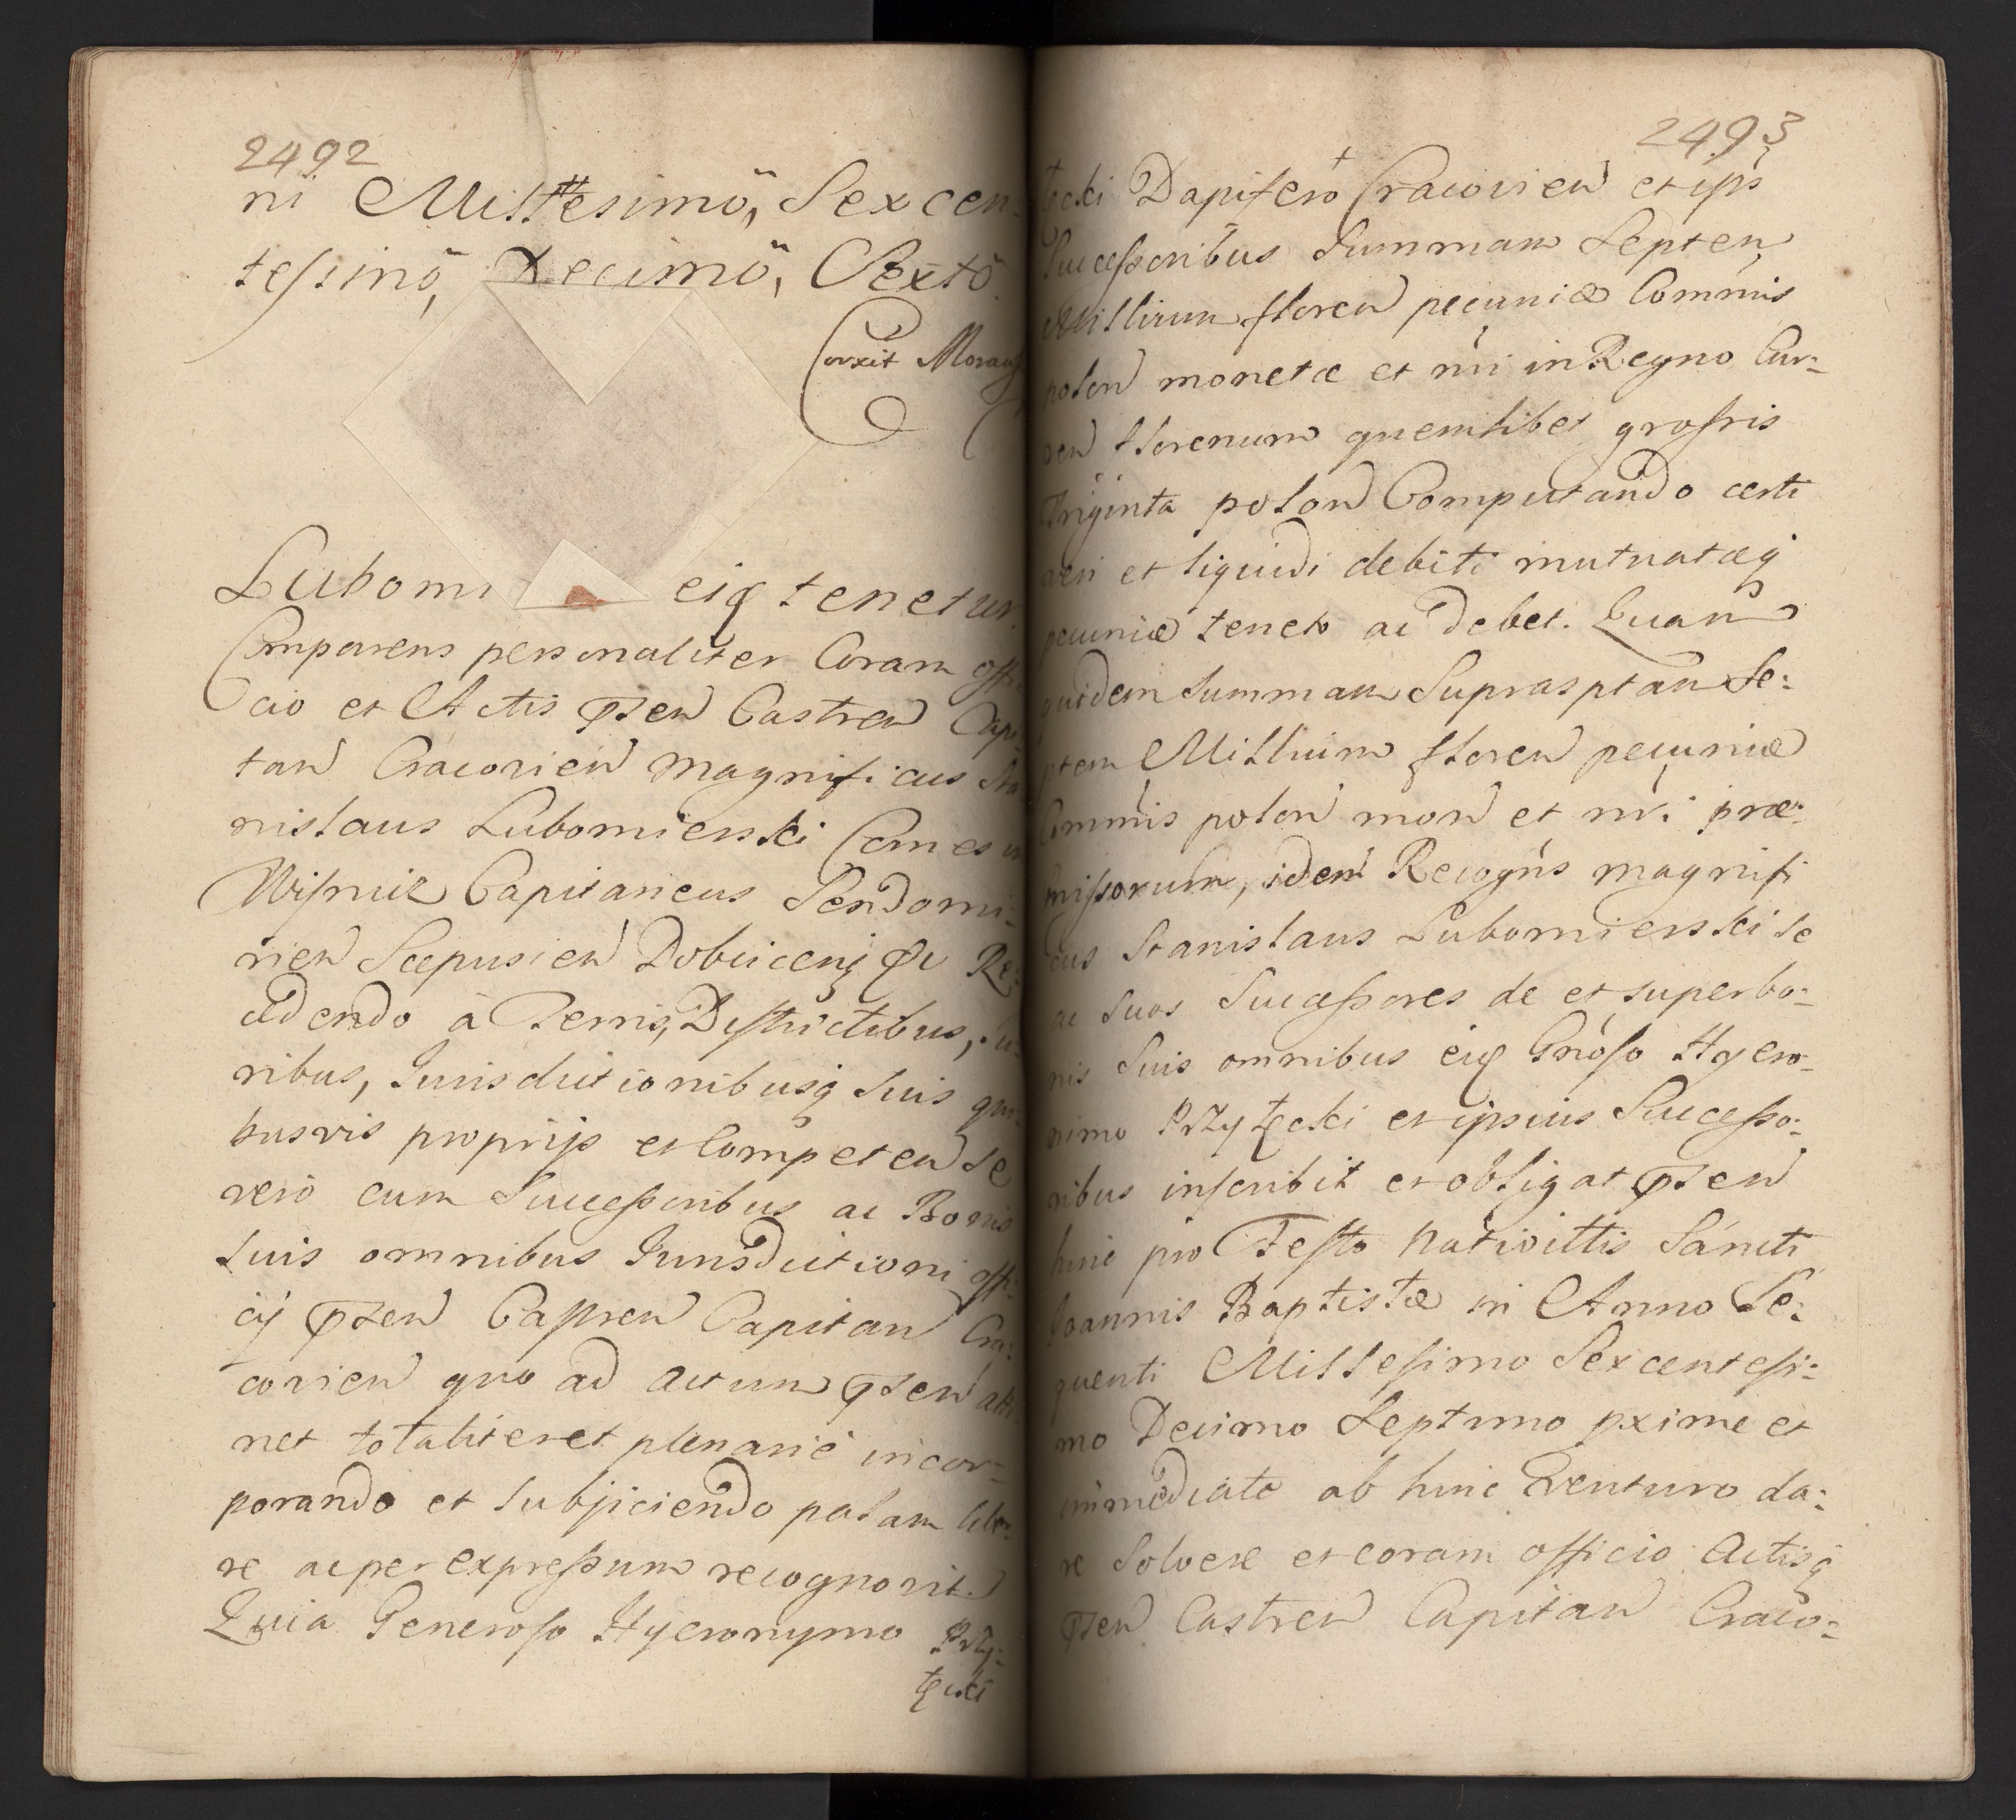 2492
ni Millesimo, Sexcen-
tessimo, Decimo, Sexto.
Corxit
Lubomi eiq tenetur.
Comparens personaliter Coram offi
cio et Actis pnten Castren Capi
tan Cracovien Magnificus Sta
nislaus Lubomierski Comes in
Wisnic Capitaneus Sendomi-
rien Scepusien Dobcicenq Re-
cedendo a Terris, Districtibus, Iu-
ribus, Jurisdictionibusq Suis qui-
busvis proprijs et Competen Se
vero cum Successoribus ac Bonis
Suis omnibus Jurisdictioni offi-
cij pnten Castren Capitan Cra:
covien quo ad actum pnten atti
net totaliter et plenarie incor-
porando et Subjiciendo palam libe:
re ac per expressum recognovit.
Quia Generoso Hyeronymo Przy-
łęcki
2493
łęcki Dapifero Cracovien et ips
Successoribus Summam Septem
Millium floren pecuniæ Commis
polon monetæ et nri in Regno Cur-
ren florenum quemlibet grossis
Triginta polon Computando certi
veri et liquidi debiti mutuatæq
pecuniæ tenetr ac debet. Quam
quidem Summam Suprasptam Se:
ptem Millium floren pecuniæ
Commis polon mon et nri præ-
missorum, idem Recogns Magnifi
cus Stanislaus Lubomierski se
ac Suos Successores de et super bo-
nis Suis omnibus eiq Gnoso Hyero-
nimo Przyłęcki et ipsius Successo-
ribus inscribit et obligat pnten
hinc pro Festo Nativittis Sancti
Joannis Baptistæ in Anno Se:
quenti Millesimo Sexcentesi-
mo Decimo Septimo pxime et
immediate ab hinc venturo da:
re Solvere et coram officio Actisq
pnten Castren Capitan Craco-